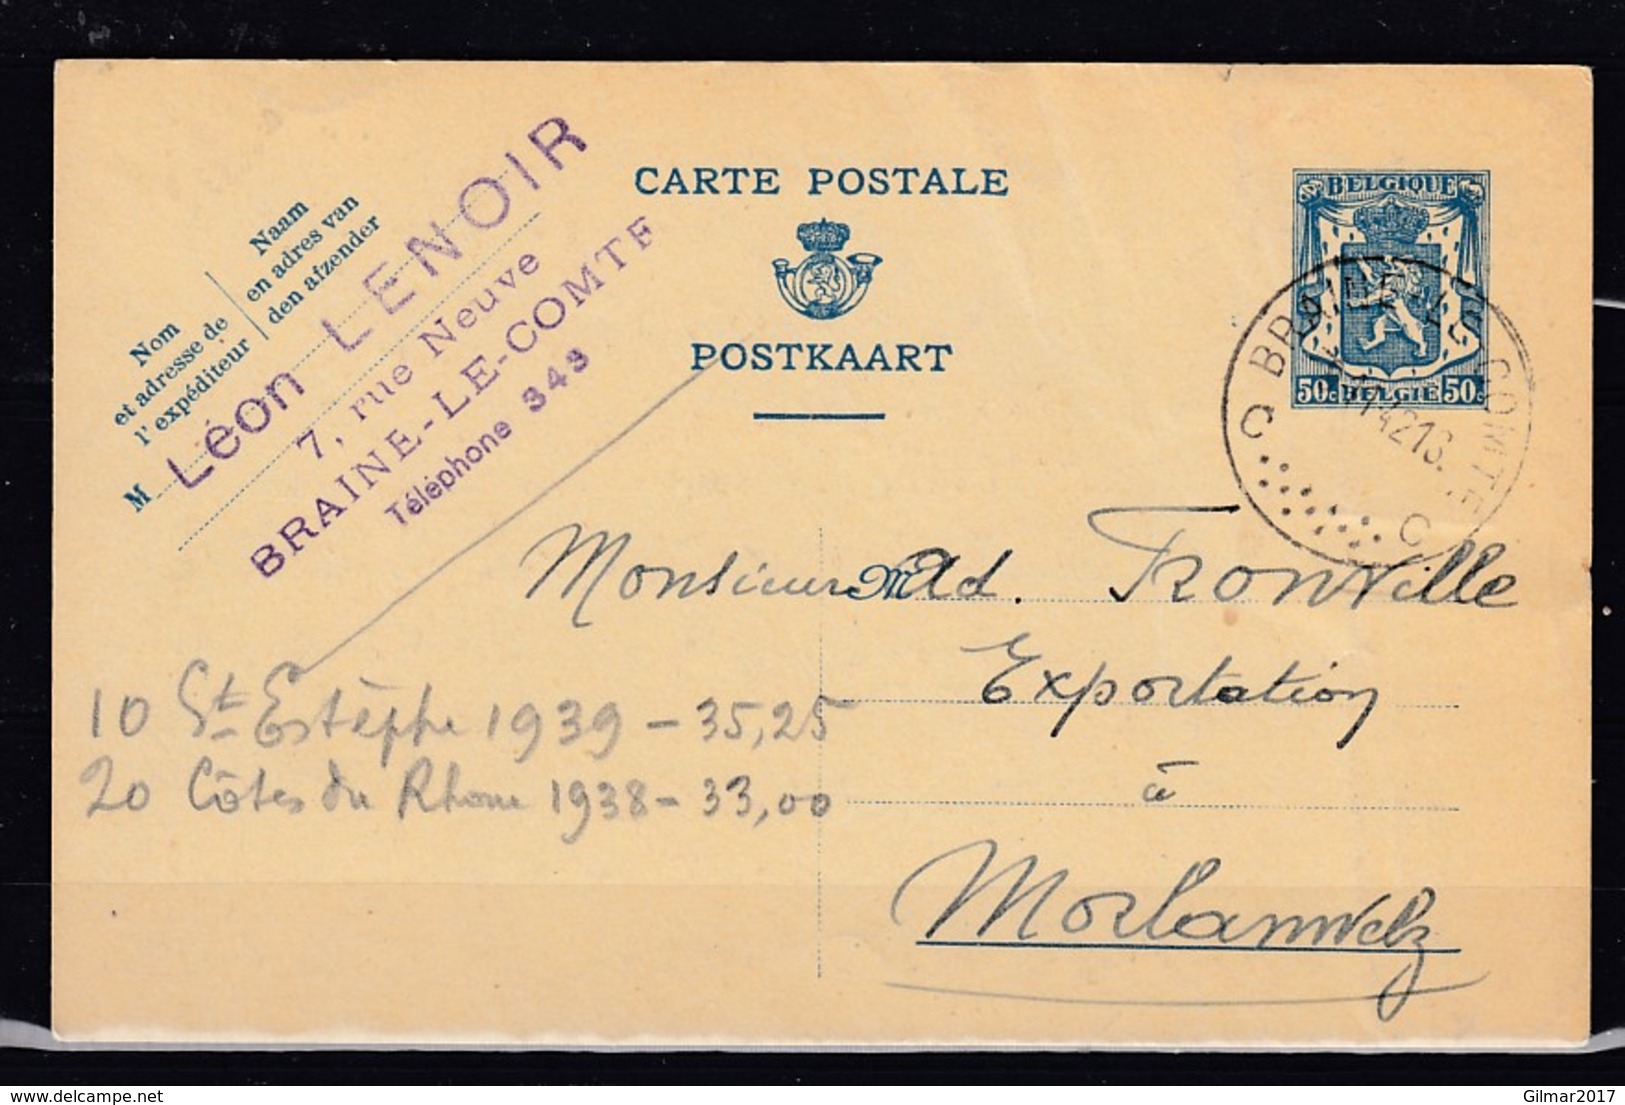 CARTE POSTALE
POSTKAART
Naam
en adres van
den afzender
Nom
et adresse de
l'expéditeur
M
Léon LENOIR
7, rue Neuve
BRAINE-LE-COMTE
Téléphone 343
BELGIQUE
50c BELGIË 50c
BRAINE-LE-COMTE
C C
Monsieur M Ad. Tronville
Exportation
à
Morlanwelz
10 St Estèphe 1939 - 35,25
20 Côtes du Rhone 1938 - 33,00
delcampe.net
Gilmar2017